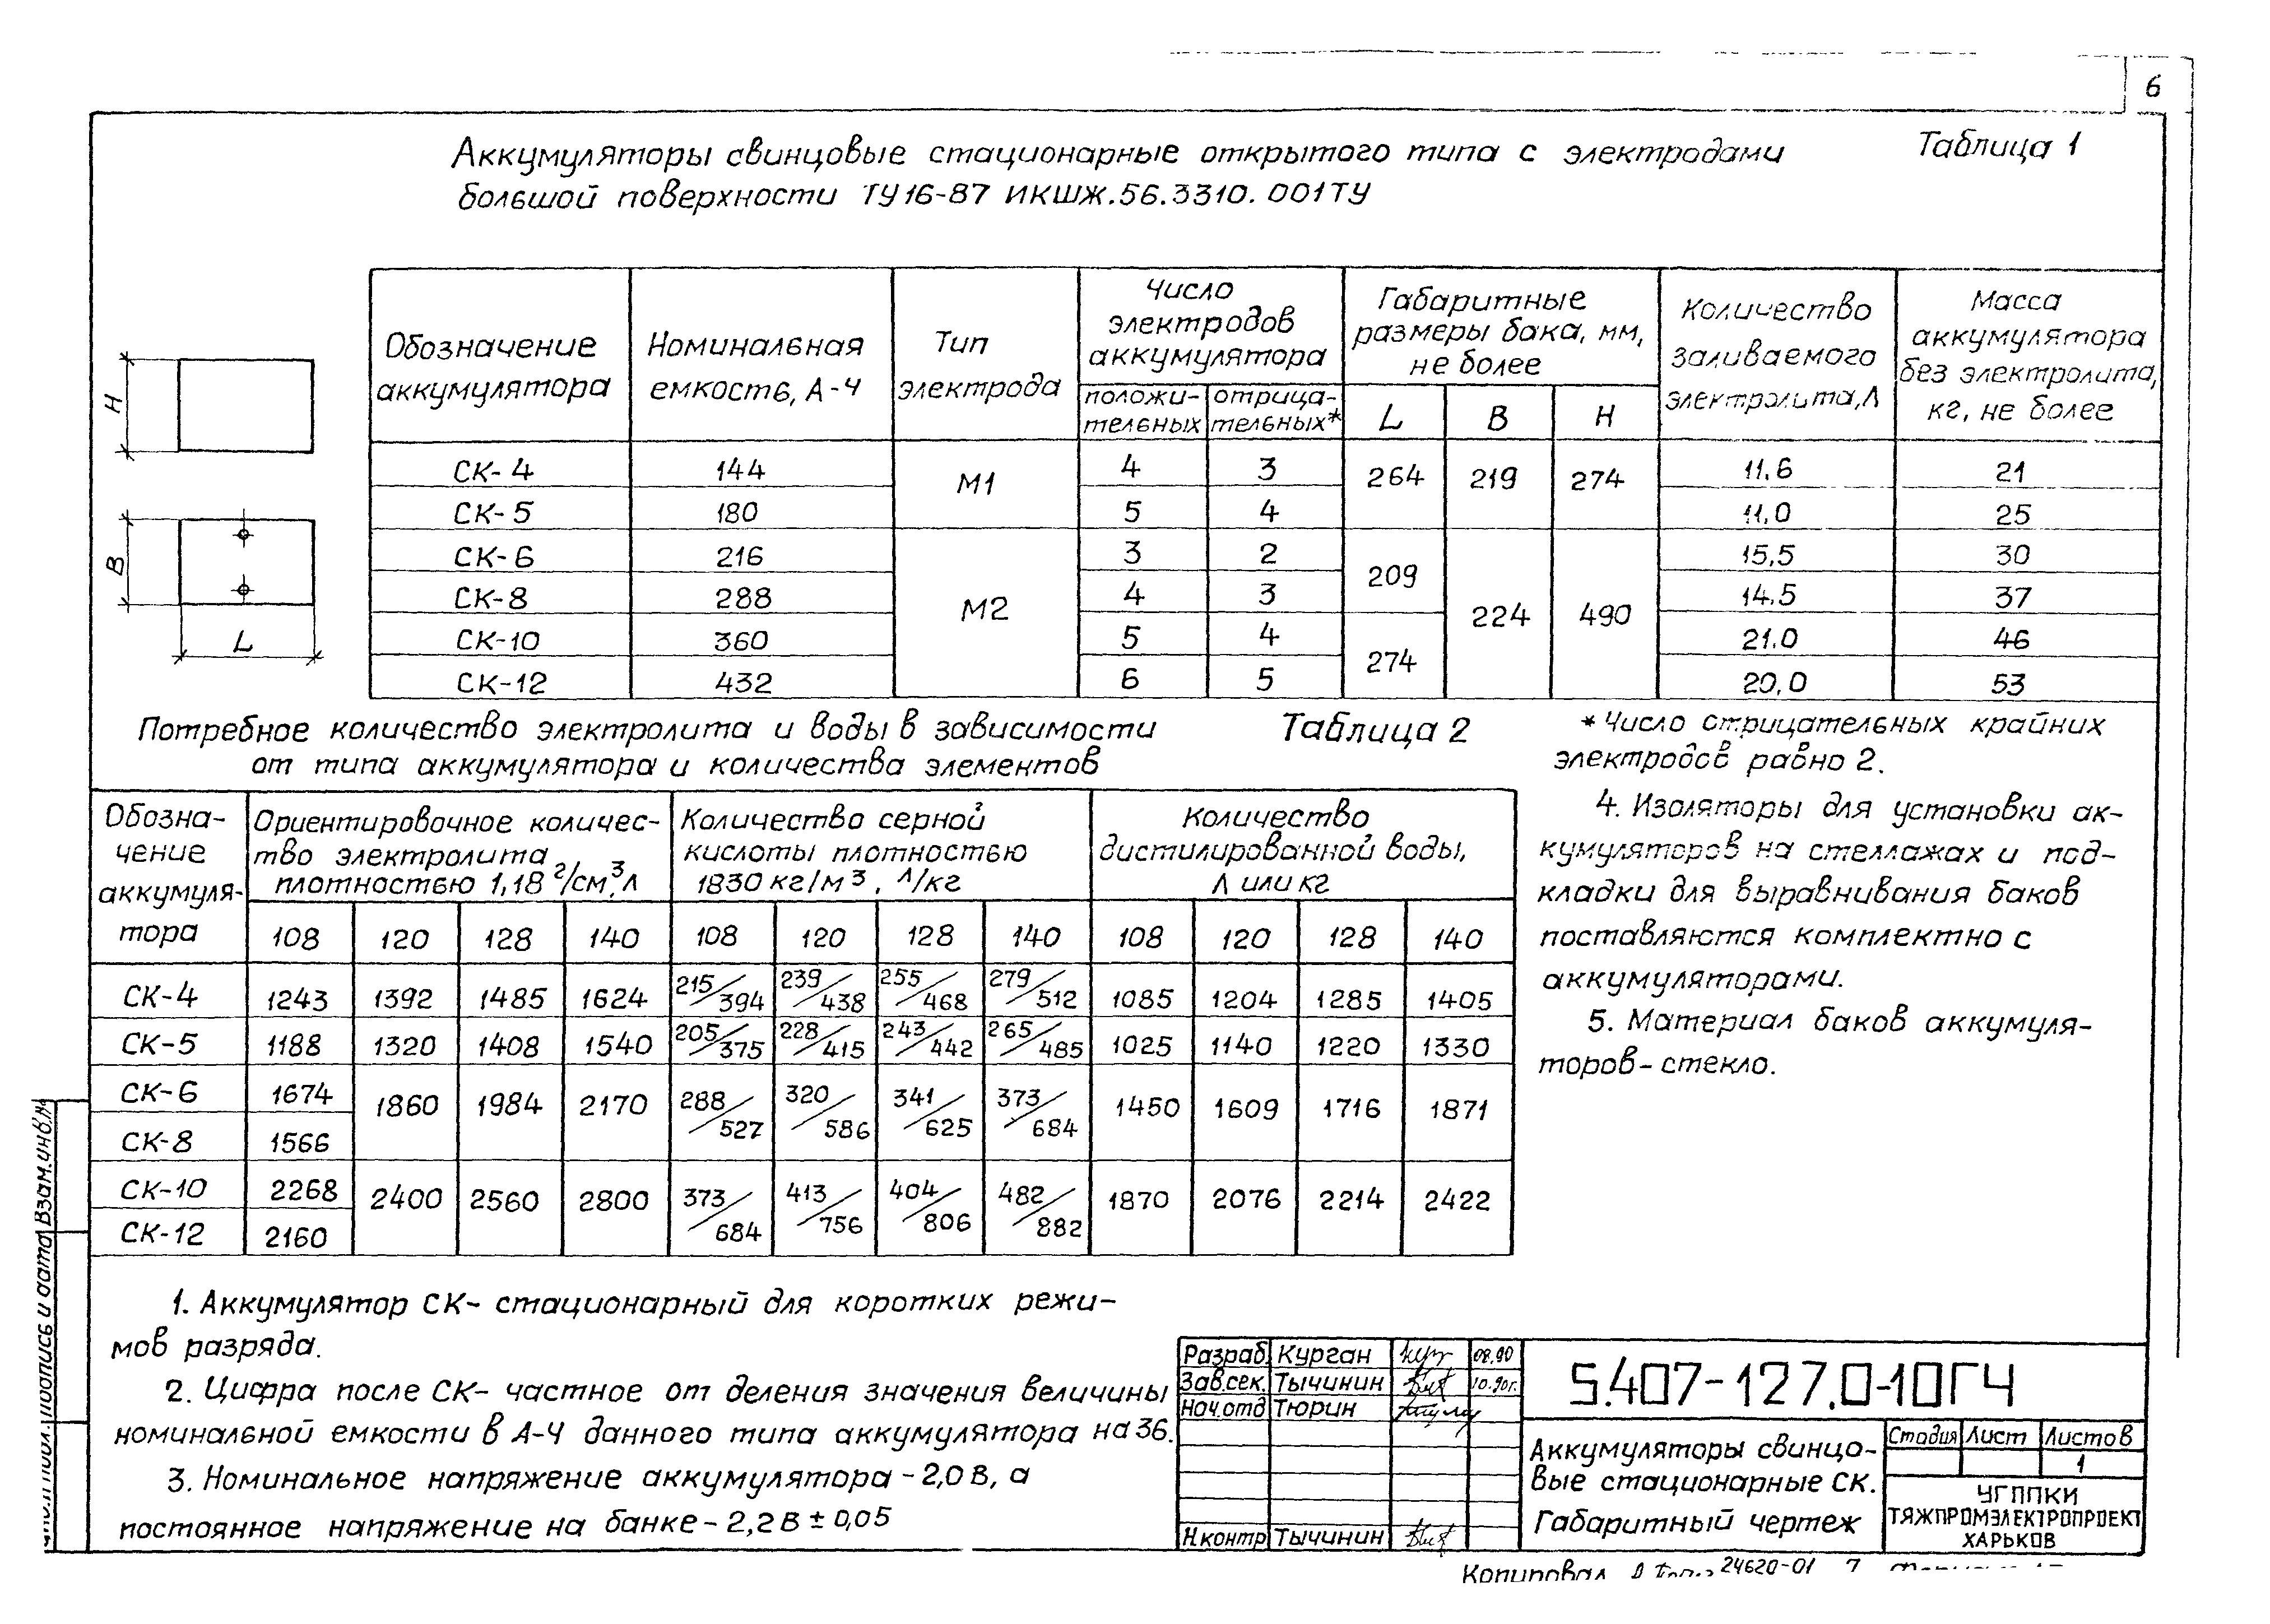 6
Таблица 1
Аккумуляторы свинцовые стационарные открытого типа с электродами
большой поверхности ТУ16-87 ИКШЖ.56.3310.001ТУ
Обозначение аккумулятора
Номинальная емкость, А-Ч
Тип электрода
Число электродов аккумулятора
положи-
тельных
отрица-
тельных*
Габаритные размеры бака, мм, не более
L B H
Количество заливаемого электролита, Л
Масса аккумулятора без электролита, кг, не более
СК-4 144 М1 4 3 264 219 274 11,6 21
СК-5 180 5 4 11,0 25
СК-6 216 М2 3 2 209 224 490 15,5 30
СК-8 288 4 3 14.5 37
СК-10 360 5 4 274 21.0 46
СК-12 432 6 5 20,0 53
H
B
L
Потребное количество электролита и воды в зависимости
от типа аккумулятора и количества элементов
Таблица 2
Обозна-
чение
аккумуля-
тора
Ориентировочное количес-
тво электролита
плотностью 1,18 г/см³, л
Количество серной
кислоты плотностью
1830 кг/м³, л/кг
Количество
дистилированной воды,
Л или кг
108 120 128 140 108 120 128 140 108 120 128 140
СК-4 1243 1392 1485 1624 215/394 239/438 255/468 279/512 1085 1204 1285 1405
СК-5 1188 1320 1408 1540 205/375 228/415 243/442 265/485 1025 1140 1220 1330
СК-6 1674 1860 1984 2170 288/527 320/586 341/625 373/684 1450 1609 1716 1871
СК-8 1566
СК-10 2268 2400 2560 2800 373/684 413/756 404/806 482/882 1870 2076 2214 2422
СК-12 2160
* Число отрицательных крайних
электродов равно 2.
4. Изоляторы для установки ак-
кумуляторов на стеллажах и под-
кладки для выравнивания баков
поставляются комплектно с
аккумуляторами.
5. Материал баков аккумуля-
торов-стекло.
1. Аккумулятор СК- стационарный для коротких режи-
мов разряда.
2. Цифра после СК- частное от деления значения величины
номинальной емкости в А-Ч данного типа аккумулятора на 36.
3. Номинальное напряжение аккумулятора - 2,0 В, а
постоянное напряжение на банке - 2,2 В ± 0,05
Разраб. Курган 08.90
Зав.сек. Тычинин 10.90г.
Нач.отд Тюрин
Н.контр Тычинин
5.407-127.0-10ГЧ
Аккумуляторы свинцо-
вые стационарные СК.
Габаритный чертеж
Стадия Лист Листов
1
УГППКИ
ТЯЖПРОМЭЛЕКТРОПРОЕКТ
ХАРЬКОВ
Взам.инв.№
подпись и дата
Копировал 24620-01 7